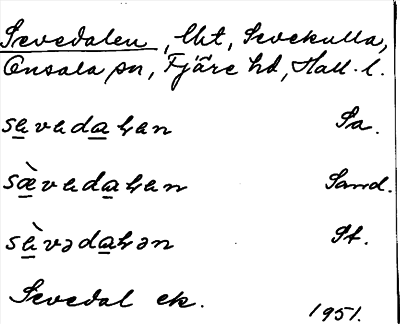 Sevedalen, lht, Sevekulla,
Onsala sn, Fjäre hd, Hall. l.
sevedalen Sa.
sæ̀vedalen Sand.
sèvədalən St.
Sevedal ek.
1951.